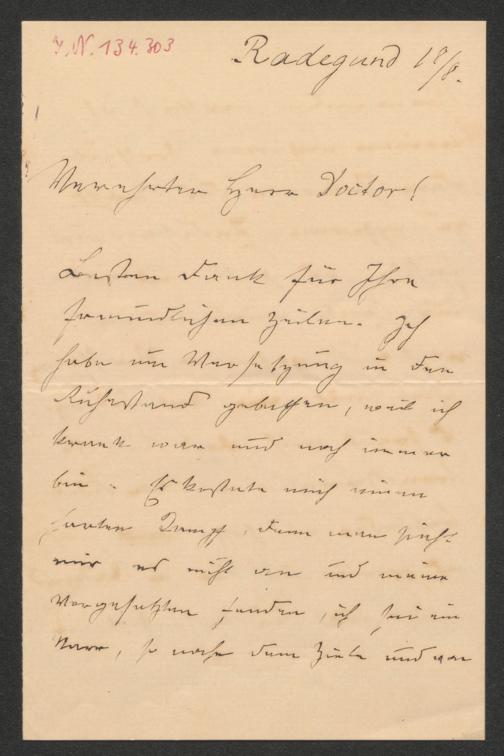 I.N. 134.303
Radegund 18/8.
Verehrter Herr Doctor!
Besten Dank für Ihre
freundlichen Zeilen. Ich
habe um Versetzung in den
Ruhestand gebethen, weil ich
krank war und noch immer
bin. Es kostete mich einen
harten Kampf, denn man sieht
mir es nicht an und meine
Vorgesetzten fanden, ich sei ein
Narr, so nahe dem Ziele und vor